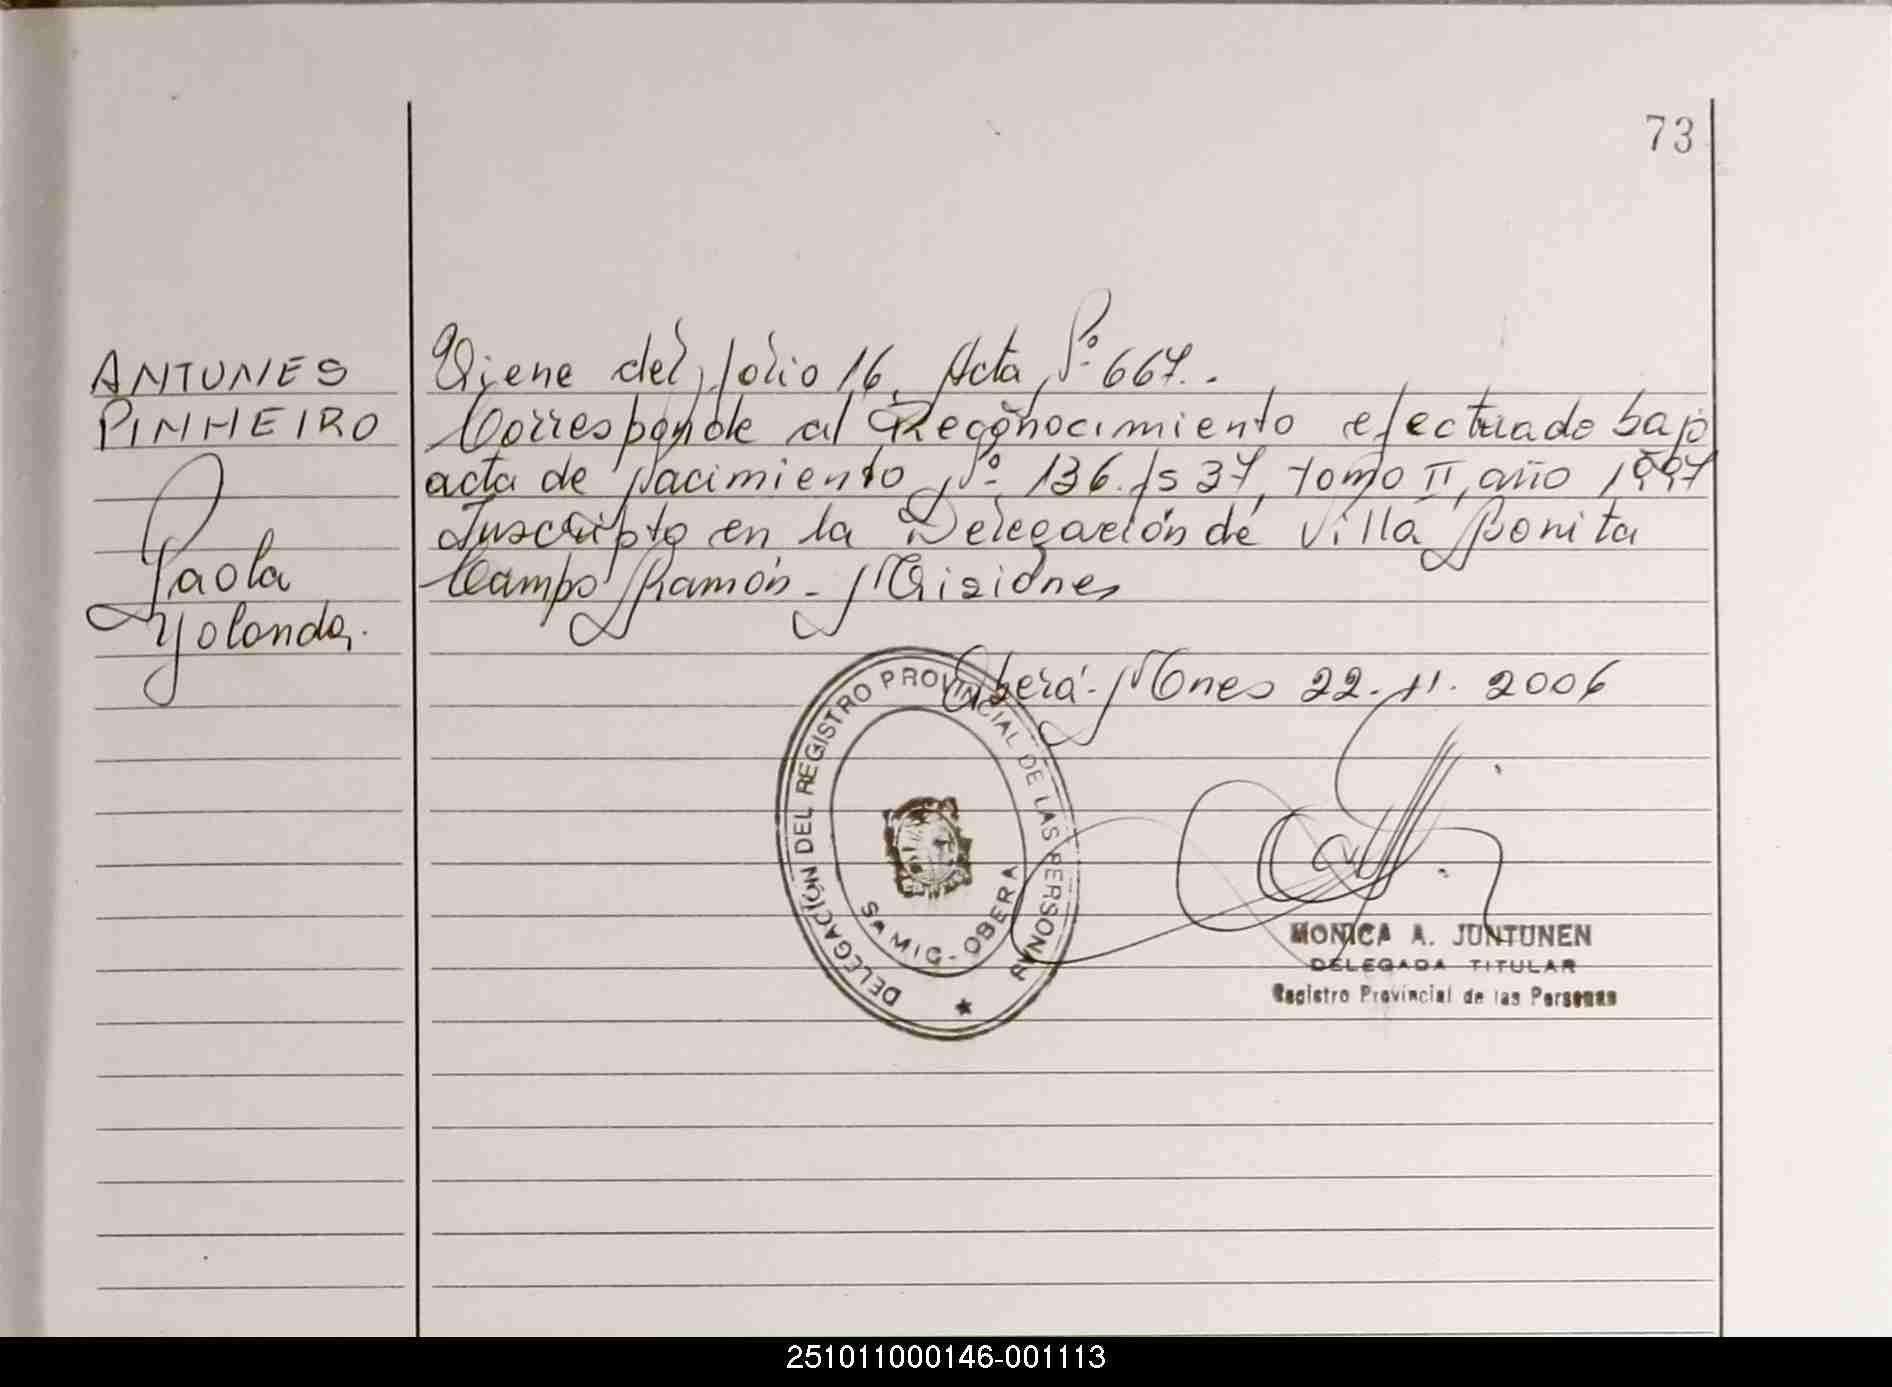 73
ANTUNES
PINHEIRO
Paola
Yolanda.
Viene del folio 16, Acta Nº 667.-
Corresponde al Reconocimiento efectuado bajo
acta de Nacimiento Nº 136. fs 37, tomo II, año 1997
Inscripto en la Delegación de Villa Bonita
Campo Ramón - Misiones
Oberá - Mnes 22-11-2006
DELEGACIÓN DEL REGISTRO PROVINCIAL DE LAS PERSONAS
SAMIC - OBERA
MONICA A. JUNTUNEN
DELEGADA TITULAR
Registro Provincial de las Personas
251011000146-001113